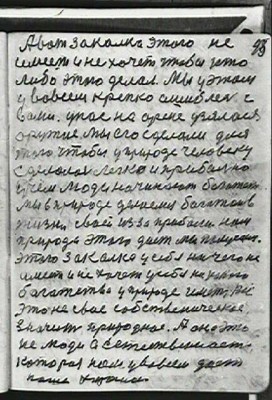 98
А вот закалка этого не
имеет и не хочет чтобы кто
либо этого делал. Мы у этом
у вовсем крепко ошиблся с
вами. у нас на арене узялося
оружие мы его сделали для
того чтобы у природе человеку
сделалось легко и прибально
у чем люди начинают богатеть
мы в природе думаем богатов
жизни своей из за прибыли нам
природа этого дает мы
этого закалка у себя ничего не
имеет и не хочет у себя
богатства у природе иметь
это не свое собственническое
значит природное. А оно это
не люди а естественность
которая нам у вовсем дает
наше хорошее